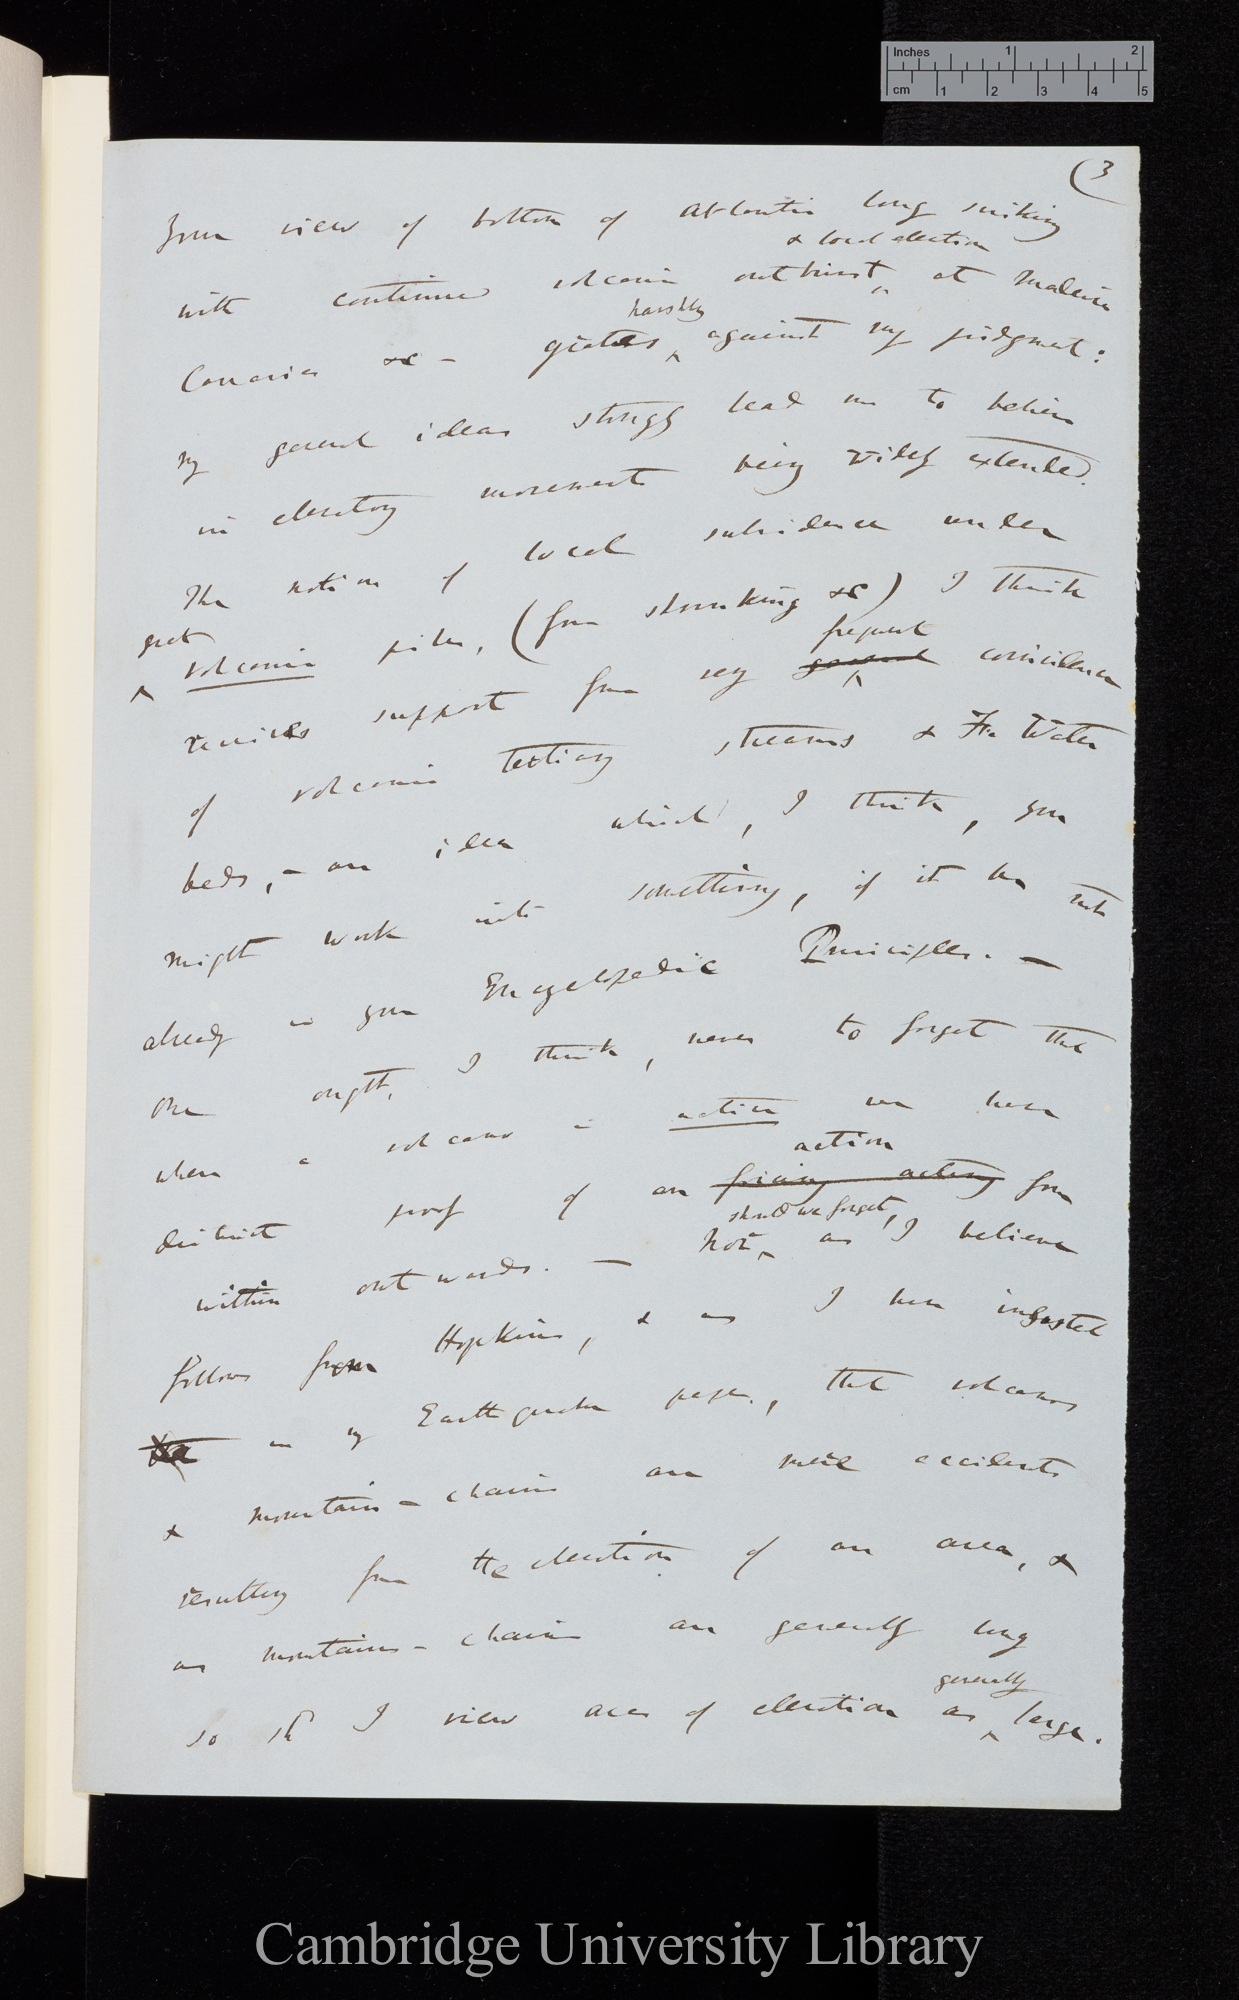 Inches 1 2
cm 1 2 3 4 5
(3
Your view of bottom of Atlantic long sinking
& local elevation
with continued volcanic outbursts at Madeira
harshly
Canaries &c — grates against my judgment:
my general ideas strongly lead me to believe
in elevatory movements being widely extended.
The notion of local subsidence under
great
volcanic piles, (from shrinking &c) I think
frequent
receives support from very general coincidence
of volcanic tertiary streams & Fr. Water
beds, — an idea which, I think, you
might work into something, if it be not
already in your Encyclopedic Principles. —
One ought, I think, never to forget that
when a volcano is action we have
action
distinct proof of an from
should we forget,
within outwards. — Nor, as I believe
follows from Hopkins, & as I have insisted
in my Earthquake paper, that volcanos
& mountain-chains are mere accidents
resulting from the elevation of an area, &
as mountain-chains are generally long
generally
so shd I view areas of elevation as large.
Cambridge University Library